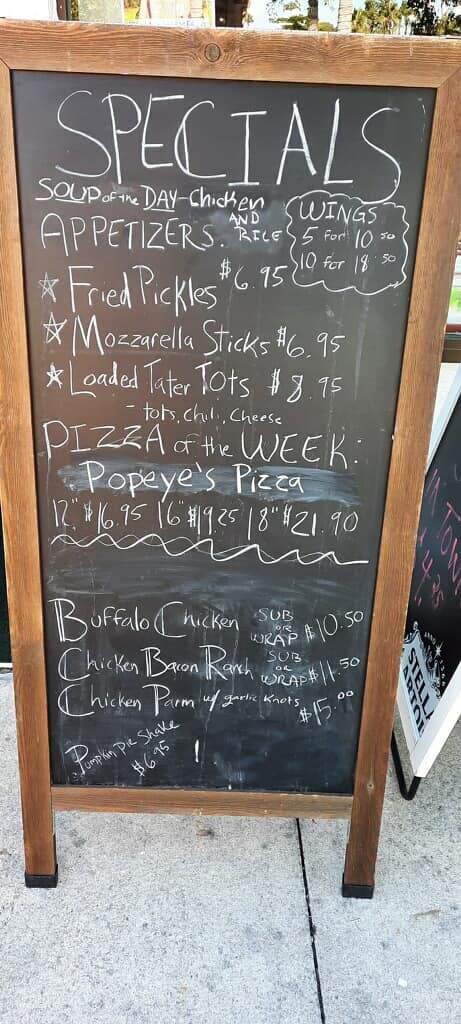 SPECIALS
SOUP of the DAY - Chicken AND RICE
WINGS
5 for 10.50
10 for 18.50
APPETIZERS.
☆ Fried Pickles $6.95
☆ Mozzarella Sticks $6.95
☆ Loaded Tater TOts $8.95
- tots, chili, cheese
PIZZA of the WEEK:
Popeye's Pizza
12" $16.95 16" $19.25 18" $21.90
Buffalo Chicken SUB OR WRAP $10.50
Chicken Bacon Ranch SUB OR WRAP $11.50
Chicken Parm w/ garlic knots $15.00
Pumpkin Pie Shake
$6.95
STELLA